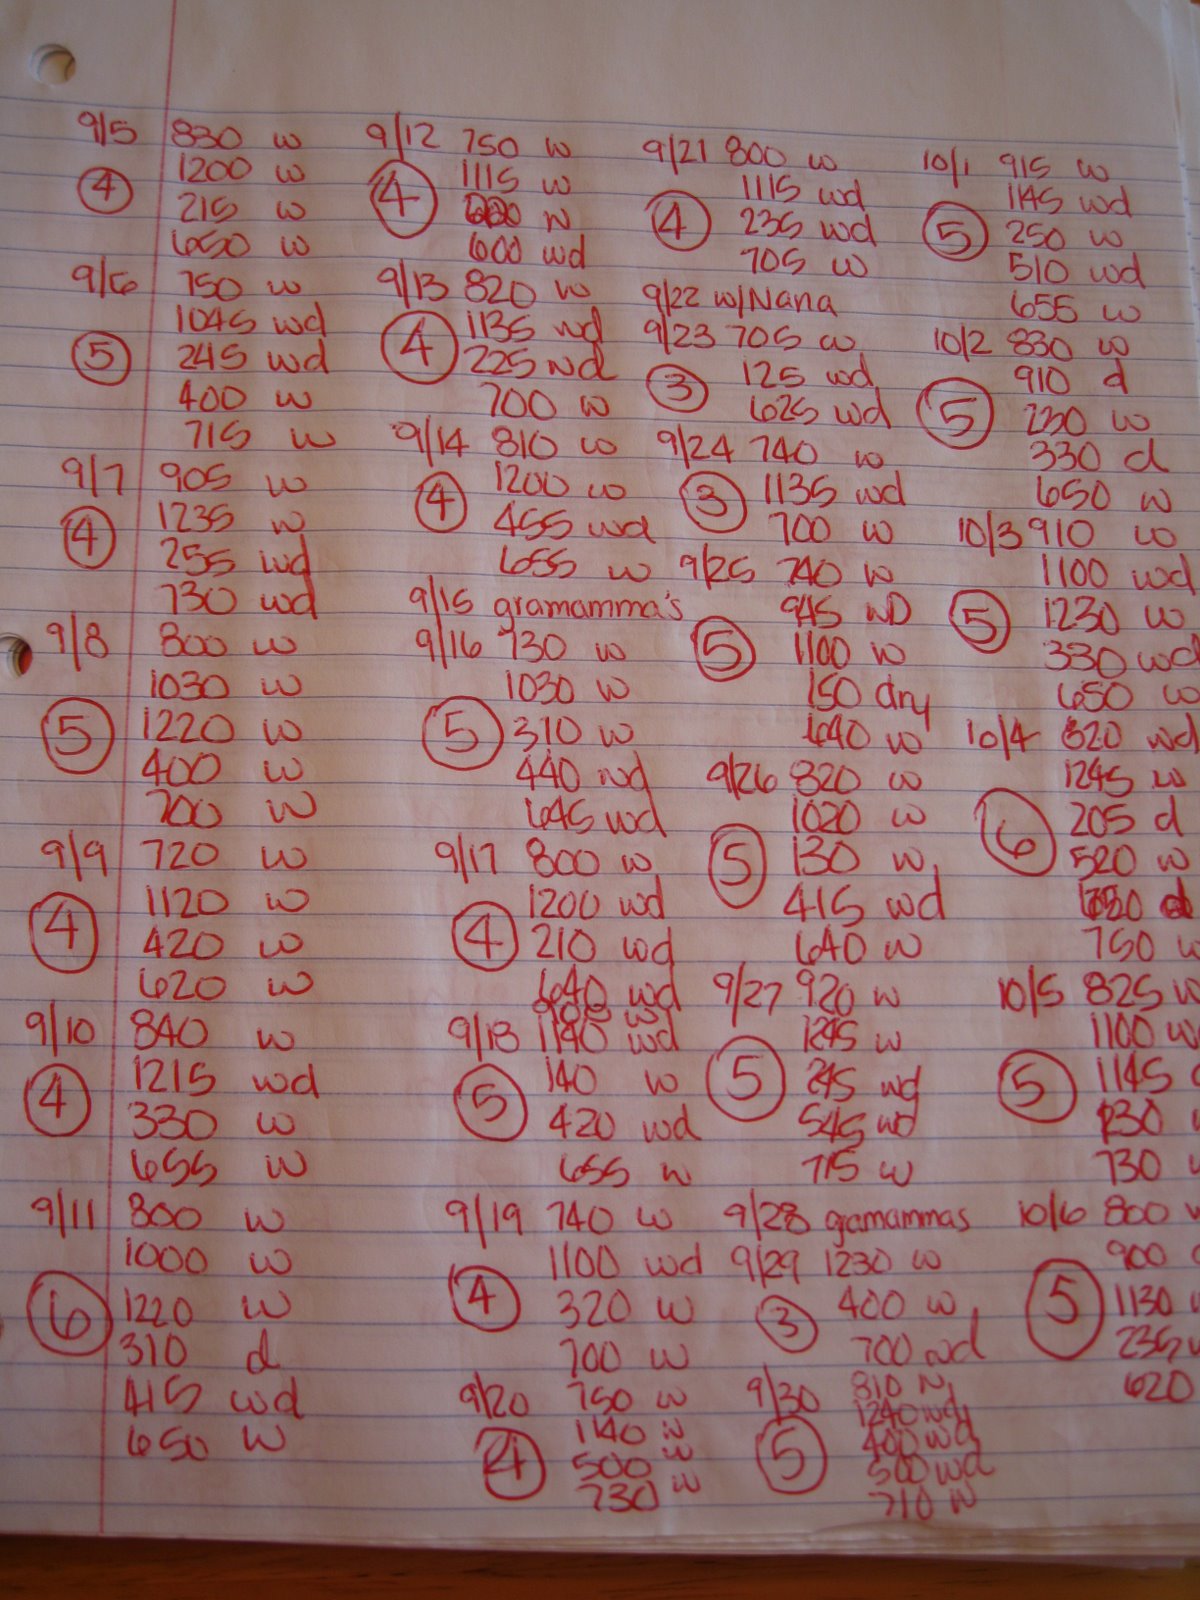 9/5 830 w
1200 w
④ 215 w
650 w
9/6 750 w
1045 wd
⑤ 245 wd
400 w
715 w
9/7 905 w
④ 1235 w
255 wd
730 wd
9/8 800 w
1030 w
⑤ 1220 w
400 w
700 w
9/9 720 w
1120 w
④ 420 w
620 w
9/10 840 w
④ 1215 wd
330 w
655 w
9/11 800 w
1000 w
⑥ 1220 w
310 d
415 wd
650 w
9/12 750 w
④ 1115 w
w
600 wd
9/13 820 w
④ 1135 wd
225 wd
700 w
9/14 810 w
④ 1200 w
455 wd
655 w
9/15 gramamma's
9/16 730 w
1030 w
⑤ 310 w
440 wd
645 wd
9/17 800 w
1200 wd
④ 210 wd
640 wd
900 wd
9/18 1140 wd
⑤ 140 w
420 wd
655 w
9/19 740 w
1100 wd
④ 320 w
700 w
9/20 750 w
1140 w
④ 500 w
730 w
9/21 800 w
1115 wd
④ 235 wd
705 w
9/22 w/Nana
9/23 705 w
③ 125 wd
625 wd
9/24 740 w
③ 1135 wd
700 w
9/25 740 w
945 WD
⑤ 1100 w
150 dry
640 w
9/26 820 w
1020 w
⑤ 130 w
415 wd
640 w
9/27 920 w
1245 w
⑤ 245 wd
545 wd
715 w
9/28 gramammas
9/29 1230 w
③ 400 w
700 wd
9/30 810 w
1240 wd
⑤ 400 wd
500 wd
710 w
10/1 915 w
1145 wd
⑤ 250 w
510 wd
655 w
10/2 830 w
910 d
⑤ 230 w
330 d
650 w
10/3 910 w
1100 wd
⑤ 1230 w
330 wd
650 w
10/4 820 wd
1245 w
⑥ 205 d
520 w
d
750 w
10/5 825 w
1100 w
⑤ 1145
230
730
10/6 800 w
900
⑤ 1130
235
620